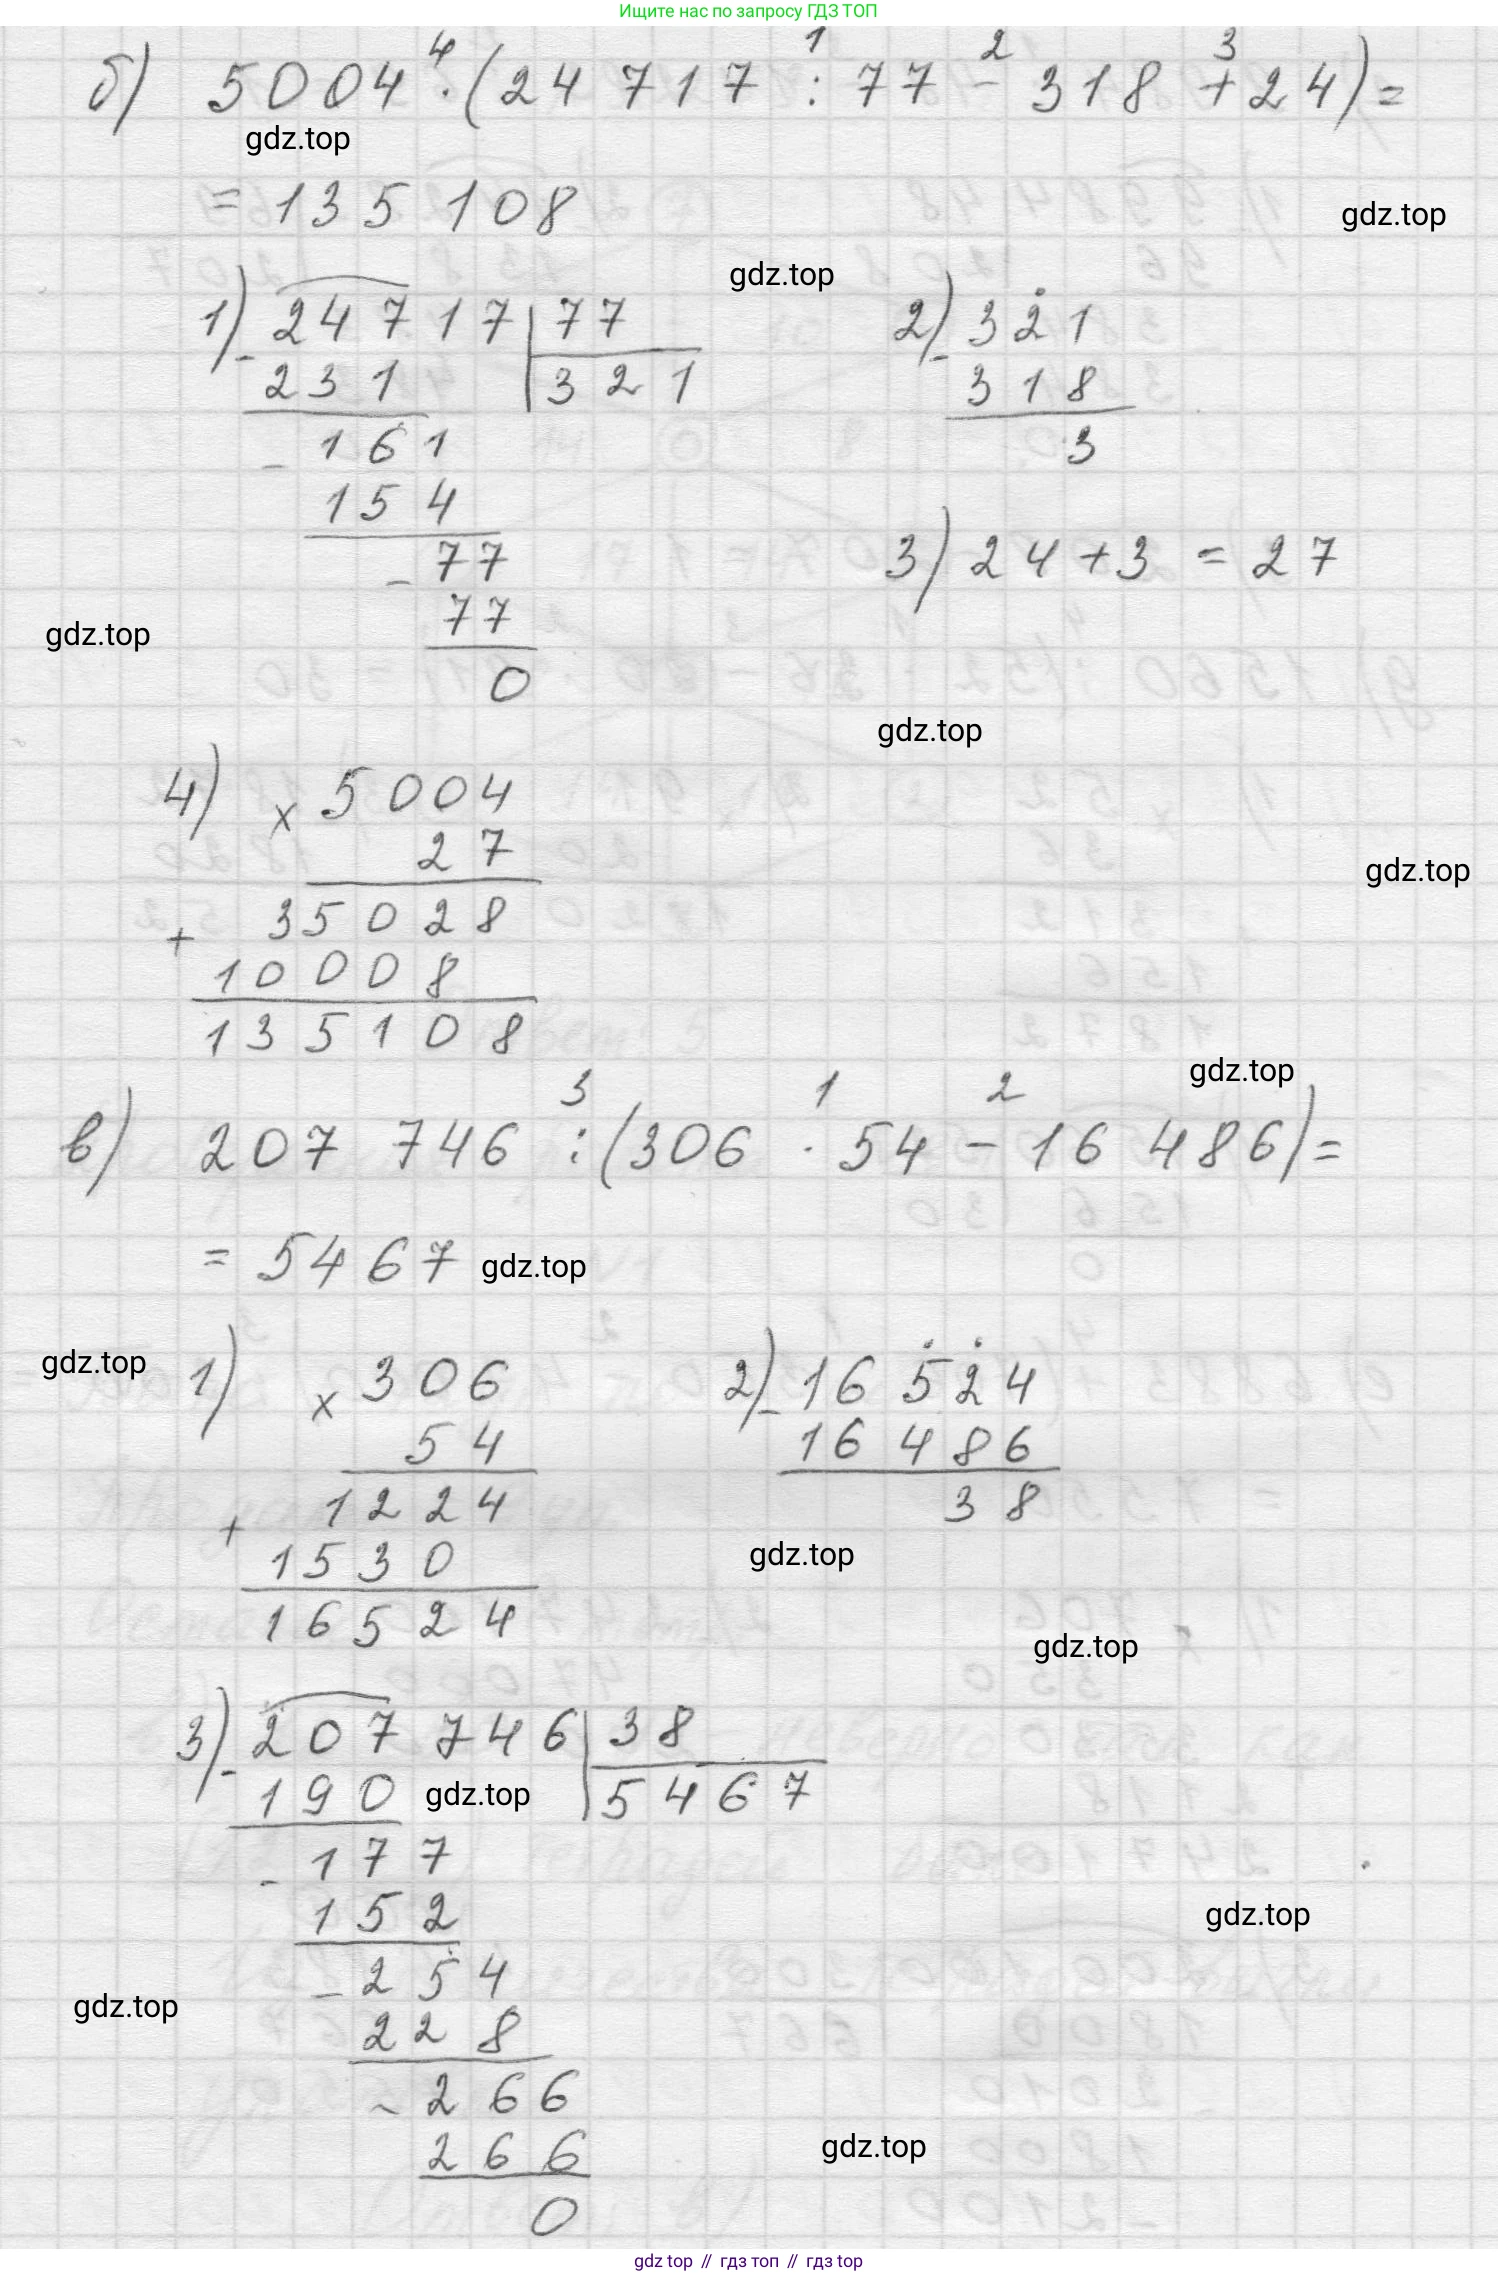 Ищите нас по запросу ГДЗ ТОП
б) 5004 · (24 717 : 77 - 318 + 24) =
4 1 2 3
gdz.top
= 135 108
gdz.top
gdz.top
1) 24717 | 77
- 231 | 321
- 161
154
- 77
77
0
2) - 321
318
3
3) 24 + 3 = 27
gdz.top
gdz.top
4) × 5004
27
gdz.top
+ 35028
10008
135108
gdz.top
3 1 2
в) 207 746 : (306 · 54 - 16 486) =
= 5467
gdz.top
gdz.top
1) × 306
54
+ 1224
1530
16524
2) - 16 524
16 486
38
gdz.top
gdz.top
3) - 207 746 | 38
190 | 5467
gdz.top
- 177
152
gdz.top
- 254
gdz.top
228
- 266
266
gdz.top
0
gdz top // гдз топ // гдз top